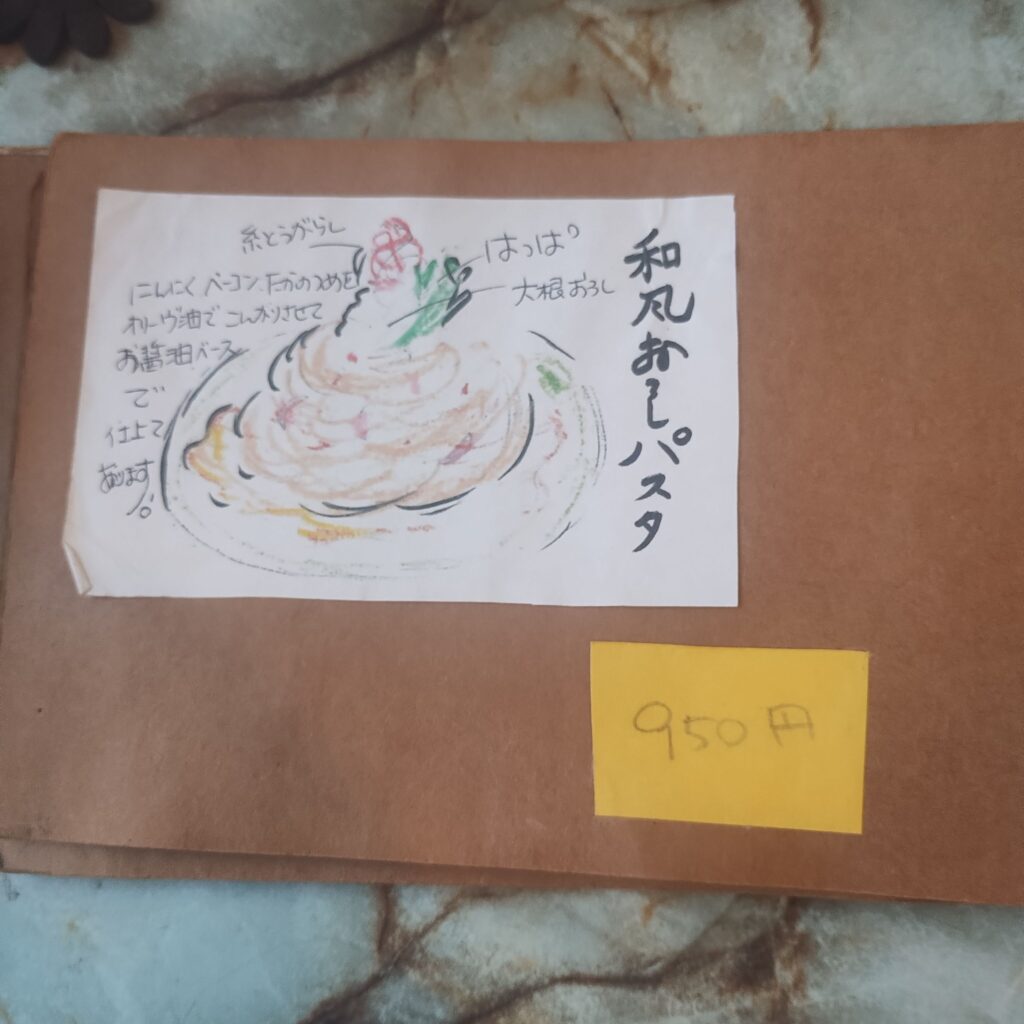 和風おろしパスタ
糸とうがらし
はっぱ
大根おろし
にんにく ベーコン、たかのつめを
オリーヴ油で こんがりさせて
お醤油ベース
で
仕上て
あります。
950円